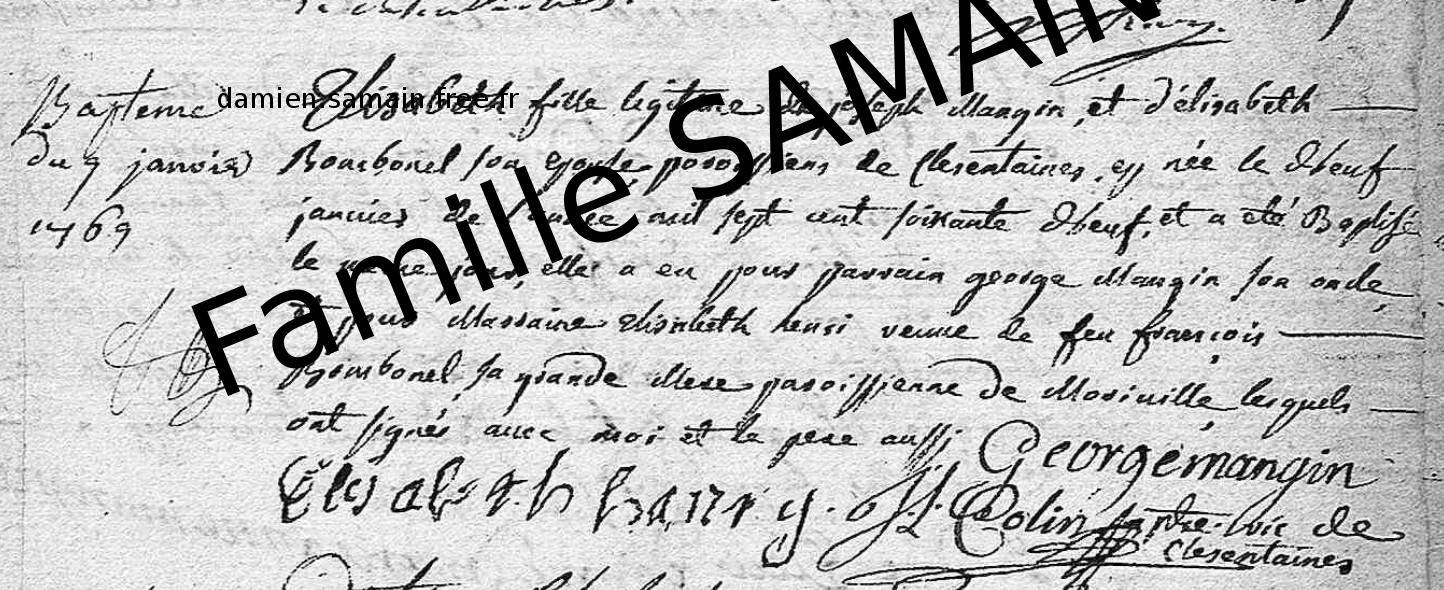 Bapteme
du 9 janvier
1769
damien.samain.free.fr
Famille SAMAIN
Elisabeth fille legitime de joseph Mangin, et d'élisabeth
Bombonel son epouse paroissiens de Clesentaines, est née le 9neuf
janvier de l'année mil sept cent soixante 9neuf, et a eté Baptisé
le meme jour, elle a eu pour parrain george Mangin son oncle,
et pour Marraine Elisabeth henri veuve de feu françois
Bombonel sa grande Mere paroissienne de Moriville, lesquels
ont signés avec moi et le pere aussi
George mangin
Elisabeth hanry. Colin, prtre. vic de
Clesentaines